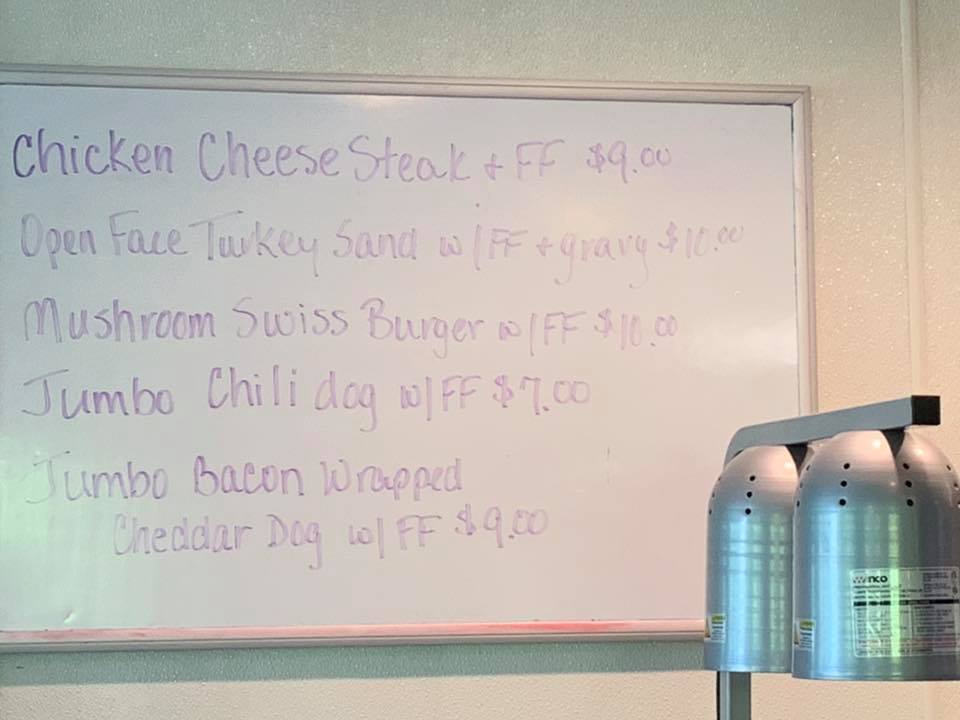 Chicken Cheese Steak + FF $9.00
Open Face Turkey Sand w/FF + gravy $10.00
Mushroom Swiss Burger w/FF $10.00
Jumbo Chili dog w/FF $7.00
Jumbo Bacon Wrapped
Cheddar Dog w/FF $9.00
winco